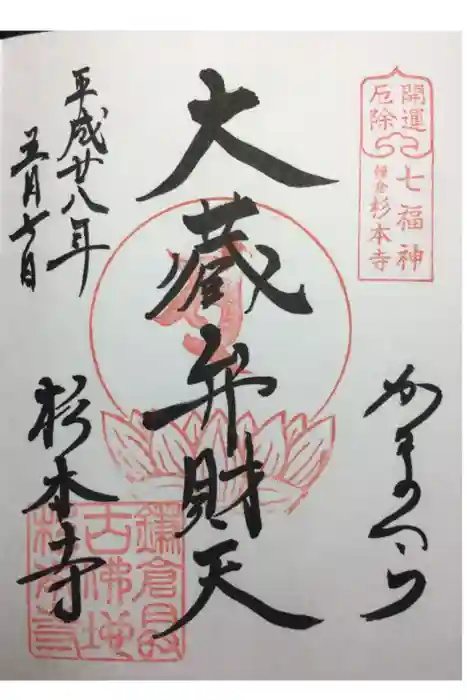 開運
厄除
七福神
鎌倉杉本寺
かまくら
大蔵弁財天
平成廿八年
五月七日
杉本寺
鎌倉最
古佛地
杉本寺